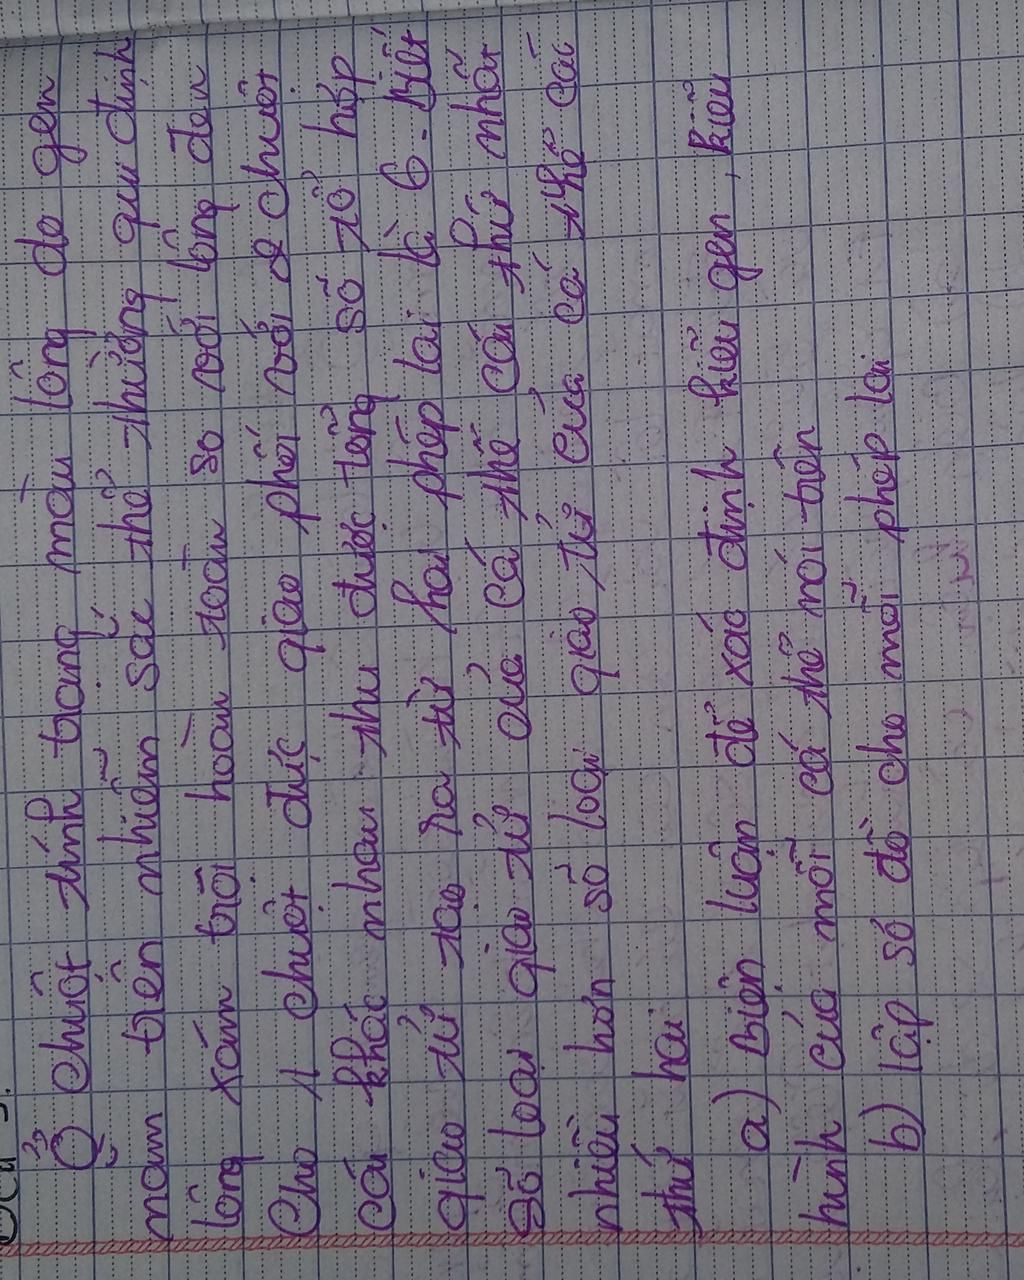 Ở chuột tính trạng màu lông do gen
nằm trên nhiễm sắc thể thường qui định
lông xám trội hoàn toàn so với lông đen
Cho 1 chuột đực giao phối với 2 chuột
cái khác nhau thu được tổng số tổ hợp
giao tử tạo ra từ hai phép lai là 6. Biết
số loại giao tử của cá thể cái thứ nhất
nhiều hơn số loại giao tử của cá thể cái
thứ hai
a) Biện luận để xác định kiểu gen, kiểu
hình của mỗi cá thể nói trên
b) lập sơ đồ cho mỗi phép lai